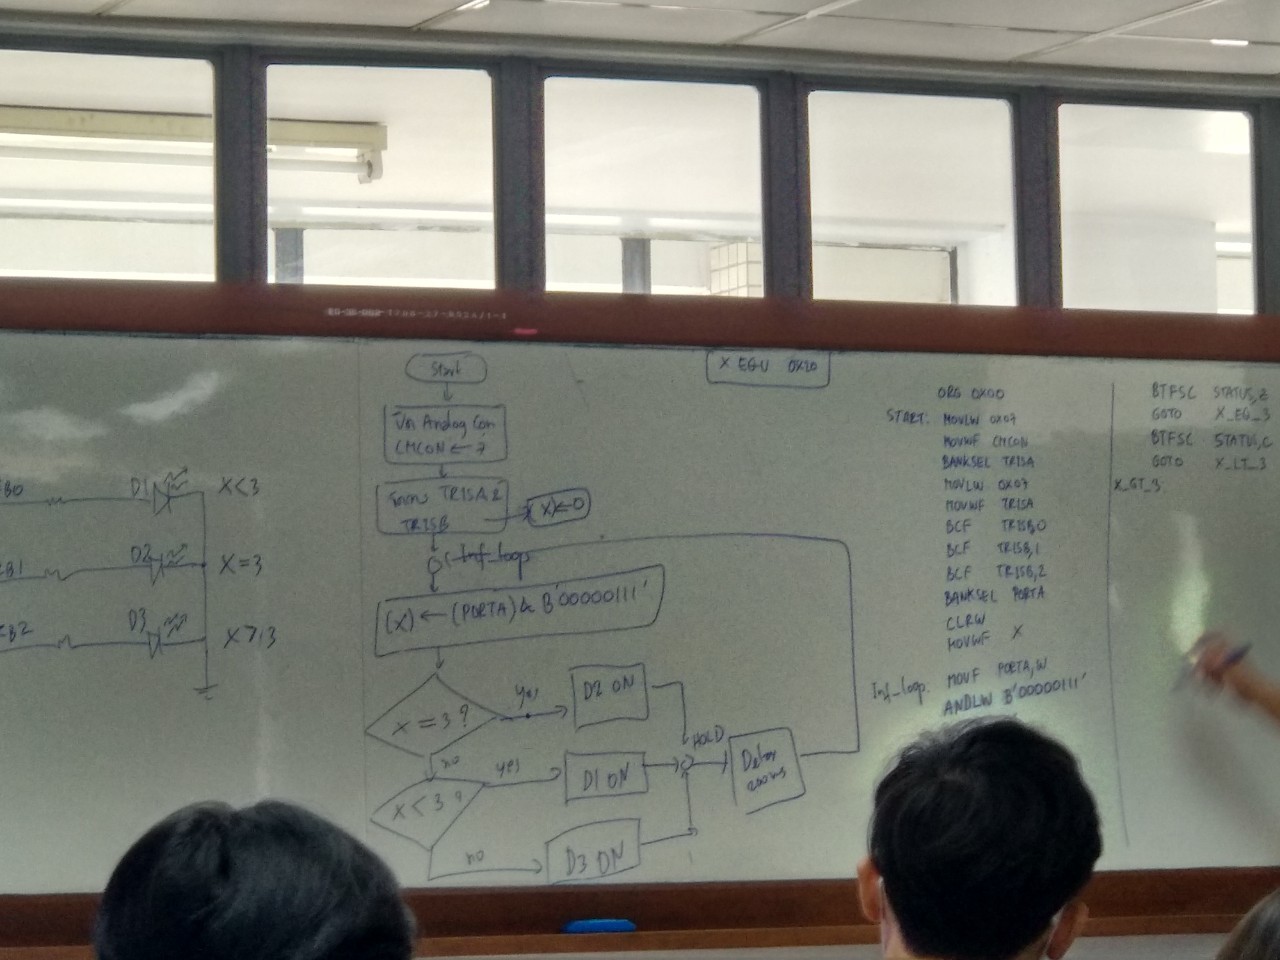 RB0
D1
X<3
RB1
D2
X=3
RB2
D3
X>3
Start
ปิด Analog Com
CMCON ← 7
TRISA,2
TRISB
(X)←0
Inf_loop
(X) ← (PORTA) & B'00000111'
X = 3 ?
yes
D2 ON
no
X < 3 ?
yes
D1 ON
no
D3 ON
HOLD
Delay
X EQU 0X20
ORG 0X00
START: MOVLW 0X07
MOVWF CMCON
BANKSEL TRISA
MOVLW 0X07
MOVWF TRISA
BCF TRISB,0
BCF TRISB,1
BCF TRISB,2
BANKSEL PORTA
CLRW
MOVWF X
Inf_loop: MOVF PORTA,W
ANDLW B'00000111'
BTFSC STATUS,Z
GOTO X_EQ_3
BTFSC STATUS,C
GOTO X_LT_3
X_GT_3